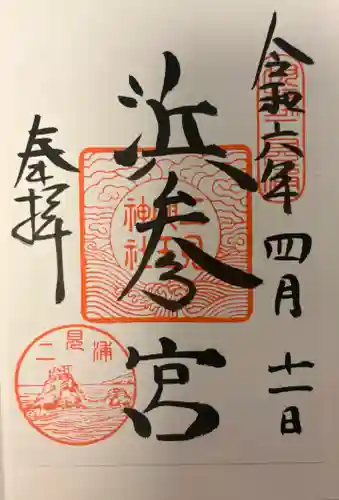 令和六年四月十一日
浜参宮
奉拝
興玉
神社
二見浦